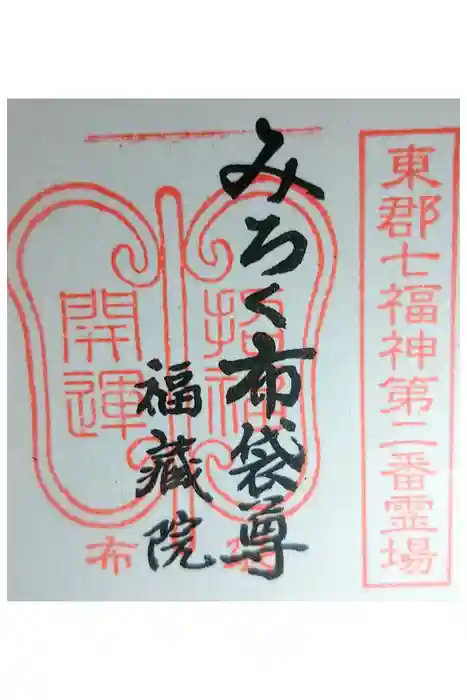 東郡七福神第二番霊場
みろく布袋尊
福藏院
招福
開運
布袋